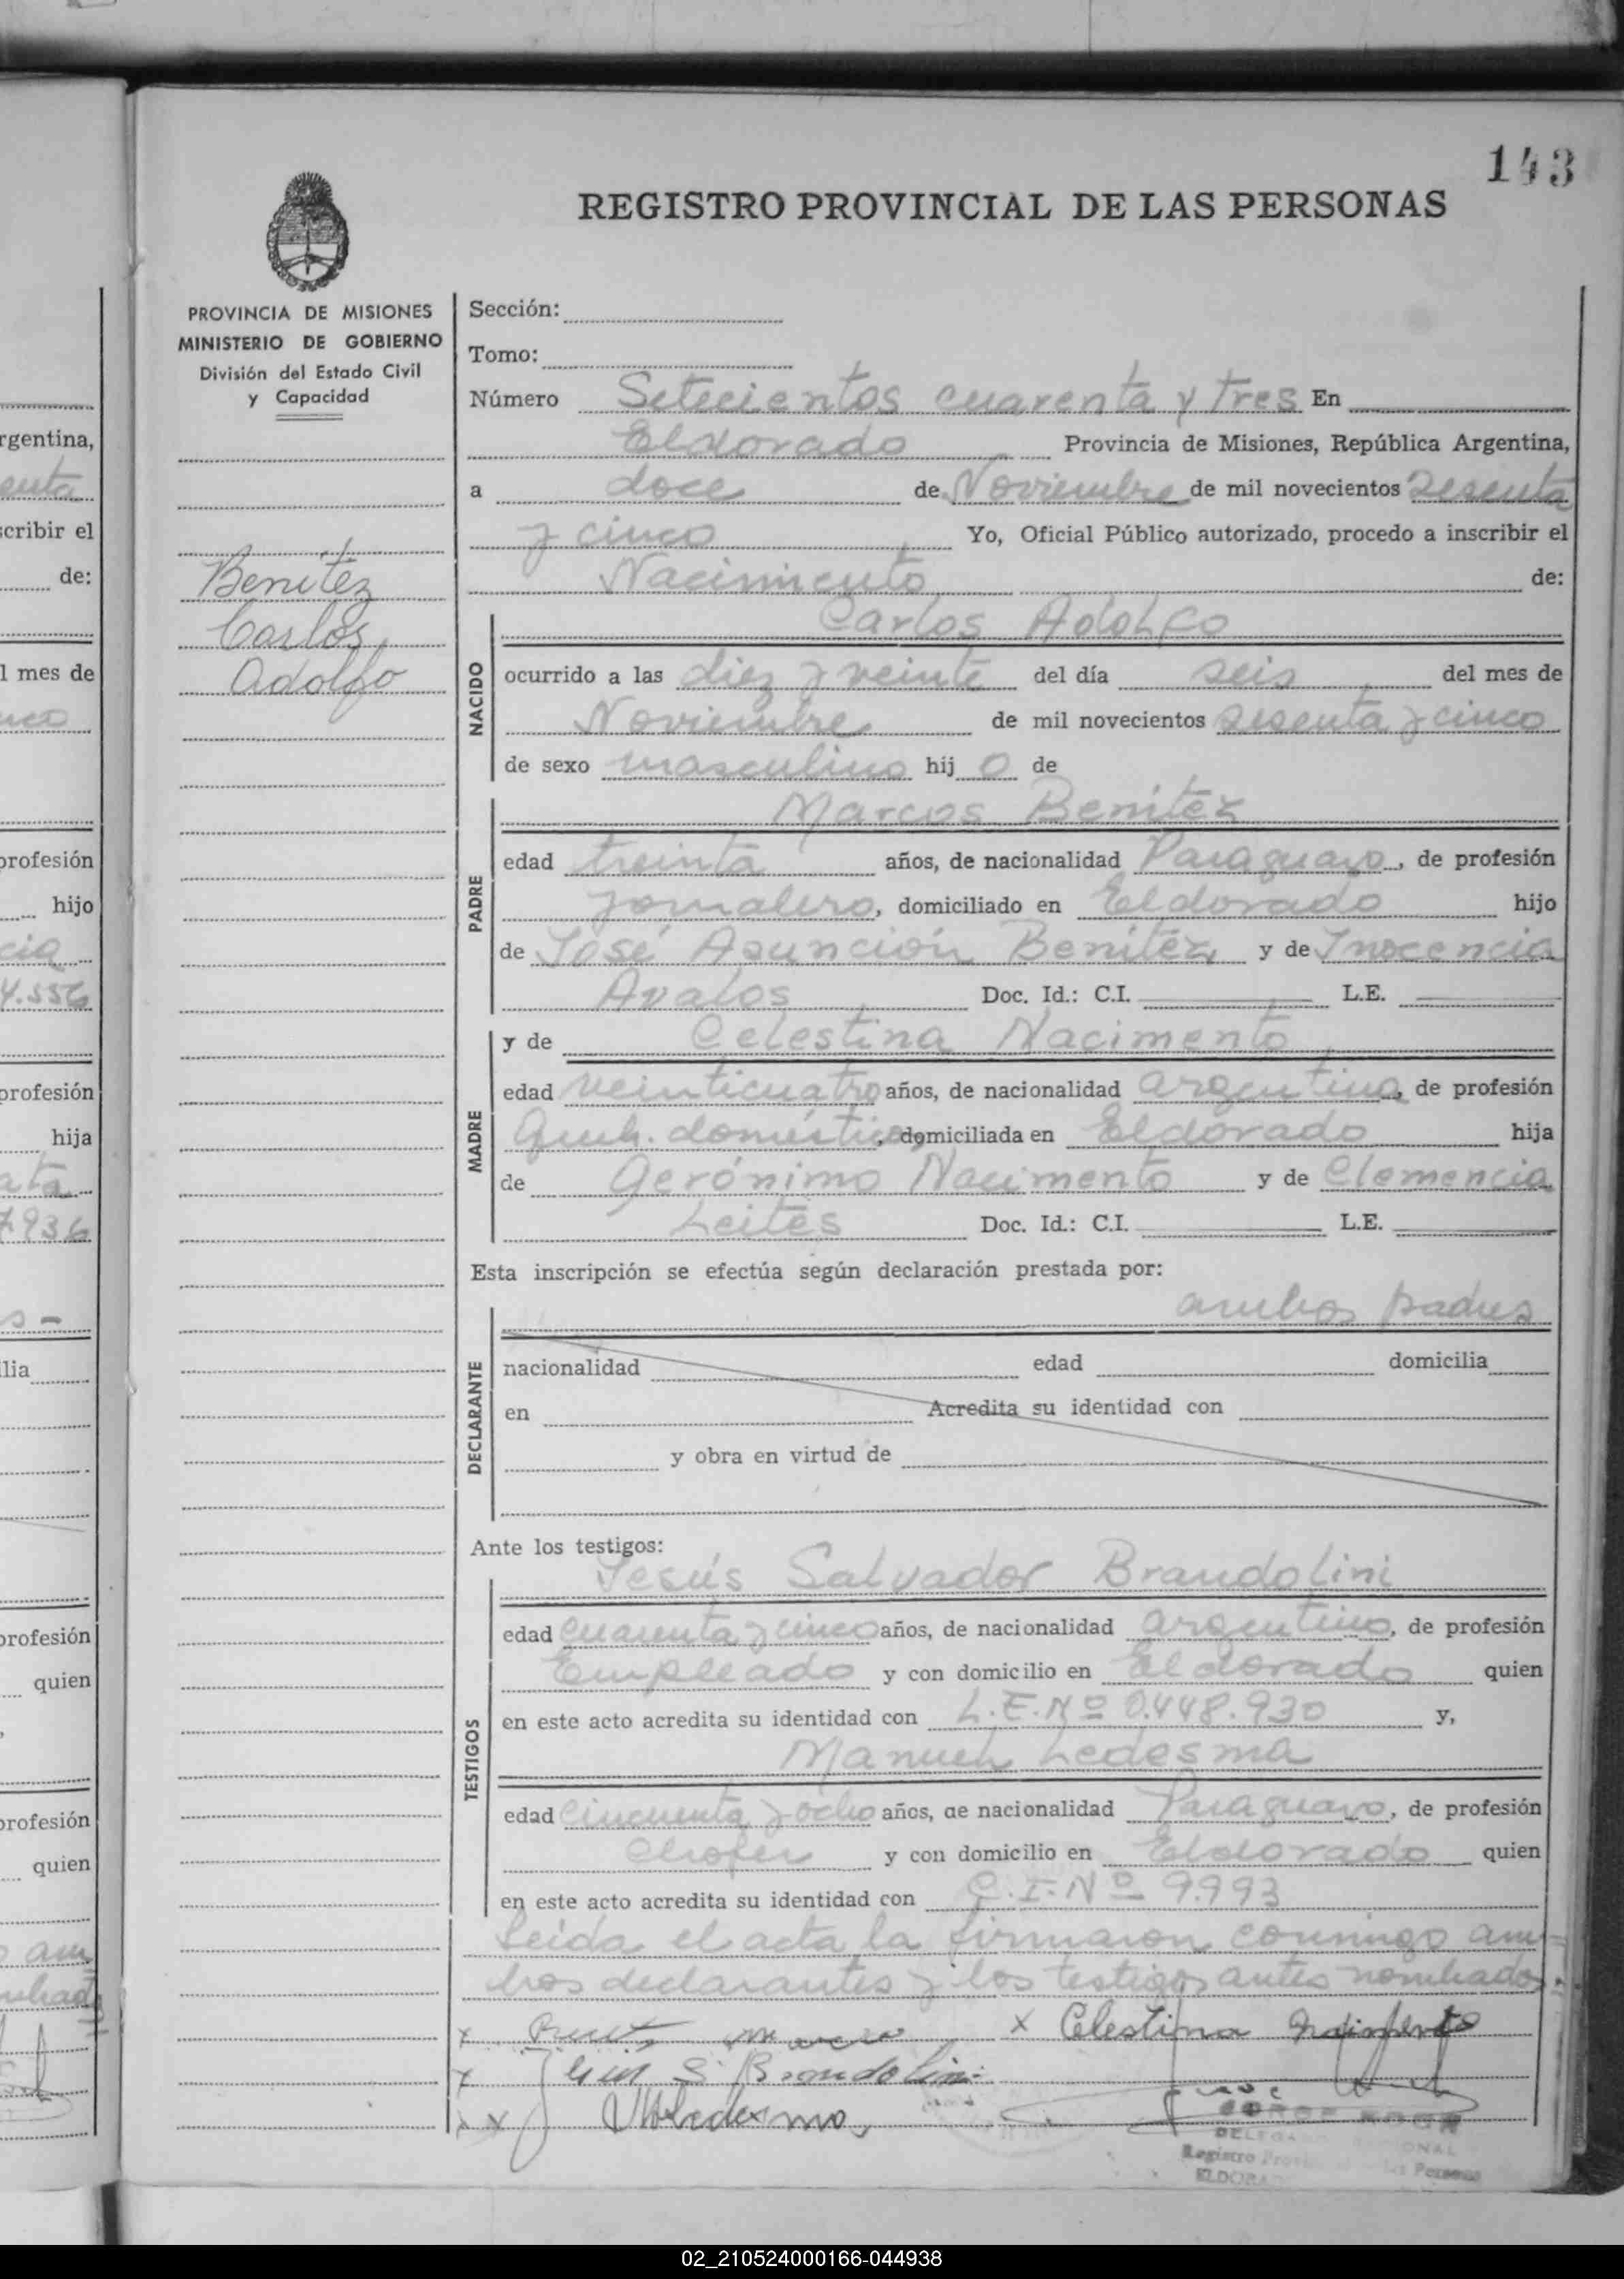 143
REGISTRO PROVINCIAL DE LAS PERSONAS
PROVINCIA DE MISIONES
MINISTERIO DE GOBIERNO
División del Estado Civil
y Capacidad
Benítez
Carlos
Adolfo
Sección:
Tomo:
Número Setecientos cuarenta y tres En
Eldorado Provincia de Misiones, República Argentina,
a doce de Noviembre de mil novecientos sesenta
y cinco Yo, Oficial Público autorizado, procedo a inscribir el
Nacimiento de:
NACIDO
Carlos Adolfo
ocurrido a las diez y veinte del día seis del mes de
Noviembre de mil novecientos sesenta y cinco
de sexo masculino hij o de
PADRE
Marcos Benítez
edad treinta años, de nacionalidad Paraguayo, de profesión
jornalero, domiciliado en Eldorado hijo
de José Asunción Benítez y de Inocencia
Avalos Doc. Id.: C.I. L.E.
MADRE
y de Celestina Nacimento
edad veinticuatro años, de nacionalidad argentina, de profesión
Queh. domésticos, domiciliada en Eldorado hija
de Gerónimo Nacimento y de Clemencia
Leites Doc. Id.: C.I. L.E.
Esta inscripción se efectúa según declaración prestada por:
ambos padres
DECLARANTE
nacionalidad edad domicilia
en Acredita su identidad con
y obra en virtud de
Ante los testigos:
TESTIGOS
Jesús Salvador Brandolini
edad cuarenta y cinco años, de nacionalidad argentino, de profesión
Empleado y con domicilio en Eldorado quien
en este acto acredita su identidad con L.E.Nº 0.448.930 y,
Manuel Ledesma
edad cincuenta y ocho años, de nacionalidad Paraguayo, de profesión
Chofer y con domicilio en Eldorado quien
en este acto acredita su identidad con C.I.Nº 9.993
Leída el acta la firmaron conmigo am=
bos declarantes y los testigos antes nombrados.
x x Celestina
x S. Brandolini
x x MLedesma
Registro
ELDORA
rgentina,
enta
scribir el
de:
l mes de
nco
profesión
hijo
cia
4.556
profesión
hija
ata
7.936
s -
lia
profesión
quien
profesión
quien
02_210524000166-044938